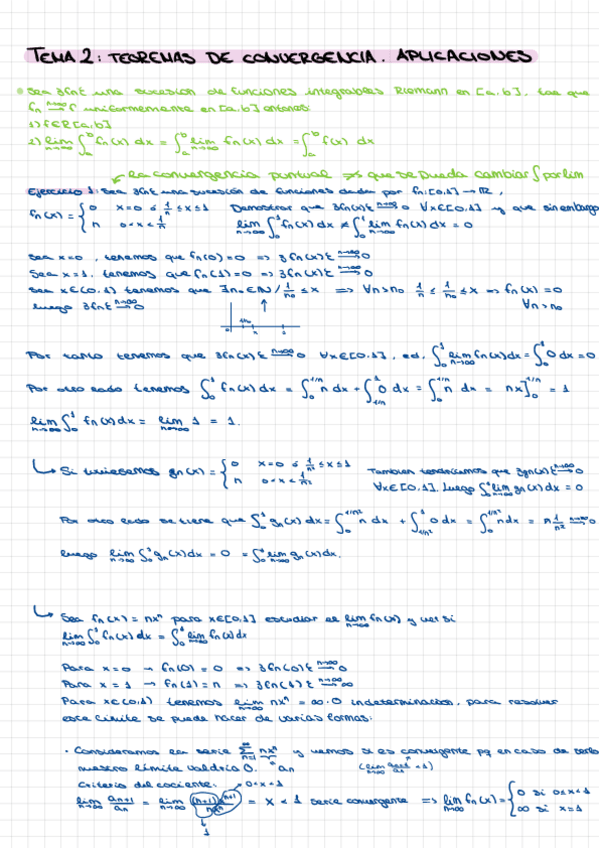 TEMA 2: TEOREMAS DE CONVERGENCIA. APLICACIONES
• Sea {fn} una sucesión de funciones integrables Riemann en [a,b], tal que
fn →(n→∞) f uniformemente en [a,b] entonces:
1) f∈R[a,b]
2) lim(n→∞) ∫_a^b fn(x) dx = ∫_a^b lim(n→∞) fn(x) dx = ∫_a^b f(x) dx
↙ la convergencia puntual ⇏ que se pueda cambiar ∫ por lim
Ejercicio 1: Sea {fn} una sucesión de funciones dadas por fn:[0,1] → ℝ,
fn(x) = { 0 x=0 ó 1/n ≤ x ≤ 1 Demostrar que {fn(x)} →(n→∞) 0 ∀x∈[0,1] y que sin embargo
n 0<x<1/n lim(n→∞) ∫_0^1 fn(x) dx ≠ ∫_0^1 lim(n→∞) fn(x) dx = 0
Sea x=0, tenemos que fn(0)=0 => {fn(x)} →(n→∞) 0
Sea x=1, tenemos que fn(1)=0 => {fn(x)} →(n→∞) 0
Sea x∈(0,1) tenemos que ∃n₀∈ℕ / 1/n₀ ≤ x => ∀n>n₀ 1/n ≤ 1/n₀ ≤ x => fn(x)=0
luego {fn} →(n→∞) 0 ∀n>n₀
Por tanto tenemos que {fn(x)} →(n→∞) 0 ∀x∈[0,1], ed, ∫_0^1 lim(n→∞) fn(x) dx = ∫_0^1 0 dx = 0
Por otro lado tenemos ∫_0^1 fn(x) dx = ∫_0^{1/n} n dx + ∫_{1/n}^1 0 dx = ∫_0^{1/n} n dx = nx]_0^{1/n} = 1
lim(n→∞) ∫_0^1 fn(x) dx = lim(n→∞) 1 = 1.
↳ Si tuviesemos gn(x) = { 0 x=0 ó 1/n² ≤ x ≤ 1 Tambien tendríamos que {gn(x)} →(n→∞) 0
n 0<x<1/n² ∀x∈[0,1]. Luego ∫_0^1 lim(n→∞) gn(x) dx = 0
Por otro lado se tiene que ∫_0^1 gn(x) dx = ∫_0^{1/n²} n dx + ∫_{1/n²}^1 0 dx = ∫_0^{1/n²} n dx = n 1/n² →(n→∞) 0
luego lim(n→∞) ∫_0^1 gn(x) dx = 0 = ∫_0^1 lim(n→∞) gn(x) dx.
↳ Sea fn(x) = nxⁿ para x∈[0,1] estudiar el lim(n→∞) fn(x) y ver si
lim(n→∞) ∫_0^1 fn(x) dx = ∫_0^1 lim(n→∞) fn(x) dx
Para x=0 → fn(0)=0 => {fn(0)} →(n→∞) 0
Para x=1 → fn(1)=n => {fn(1)} →(n→∞) ∞
Para x∈(0,1) tenemos lim(n→∞) nxⁿ = ∞·0 indeterminación, para resolver
este límite se puede hacer de varias formas:
• Consideramos la serie Σ_{n=1}^∞ nxⁿ y vemos si es convergente pq en caso de serlo
nuestro límite valdría 0. an (lim(n→∞) an+1/an < 1)
Criterio del cociente: 0<x<1
lim(n→∞) an+1/an = lim(n→∞) (n+1)xⁿ⁺¹/nxⁿ = x < 1 serie convergente => lim(n→∞) fn(x) = { 0 si 0≤x<1
1 ∞ si x=1